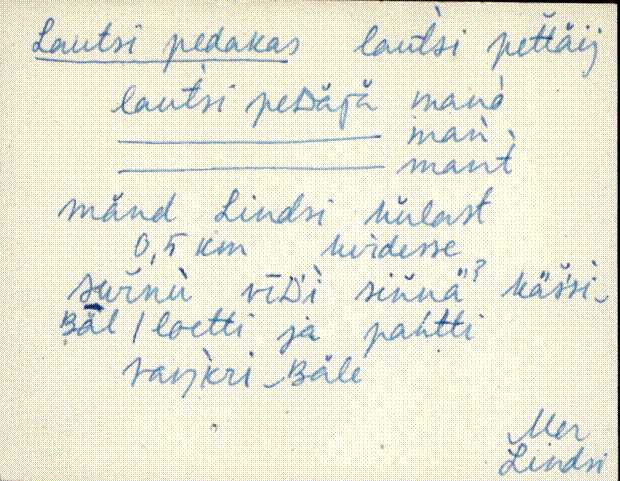 Lautsi pedakas lautśi pettäij
lautśi peᴅäjä manò
man
mant
mänd Lindsi külast
0,5 km kirdesse
surnù vīᴅì sinnä"? käśsi_
ʙäl / loetti ja pańtti
vaŋkri_ʙäle
Mer
Lindsi